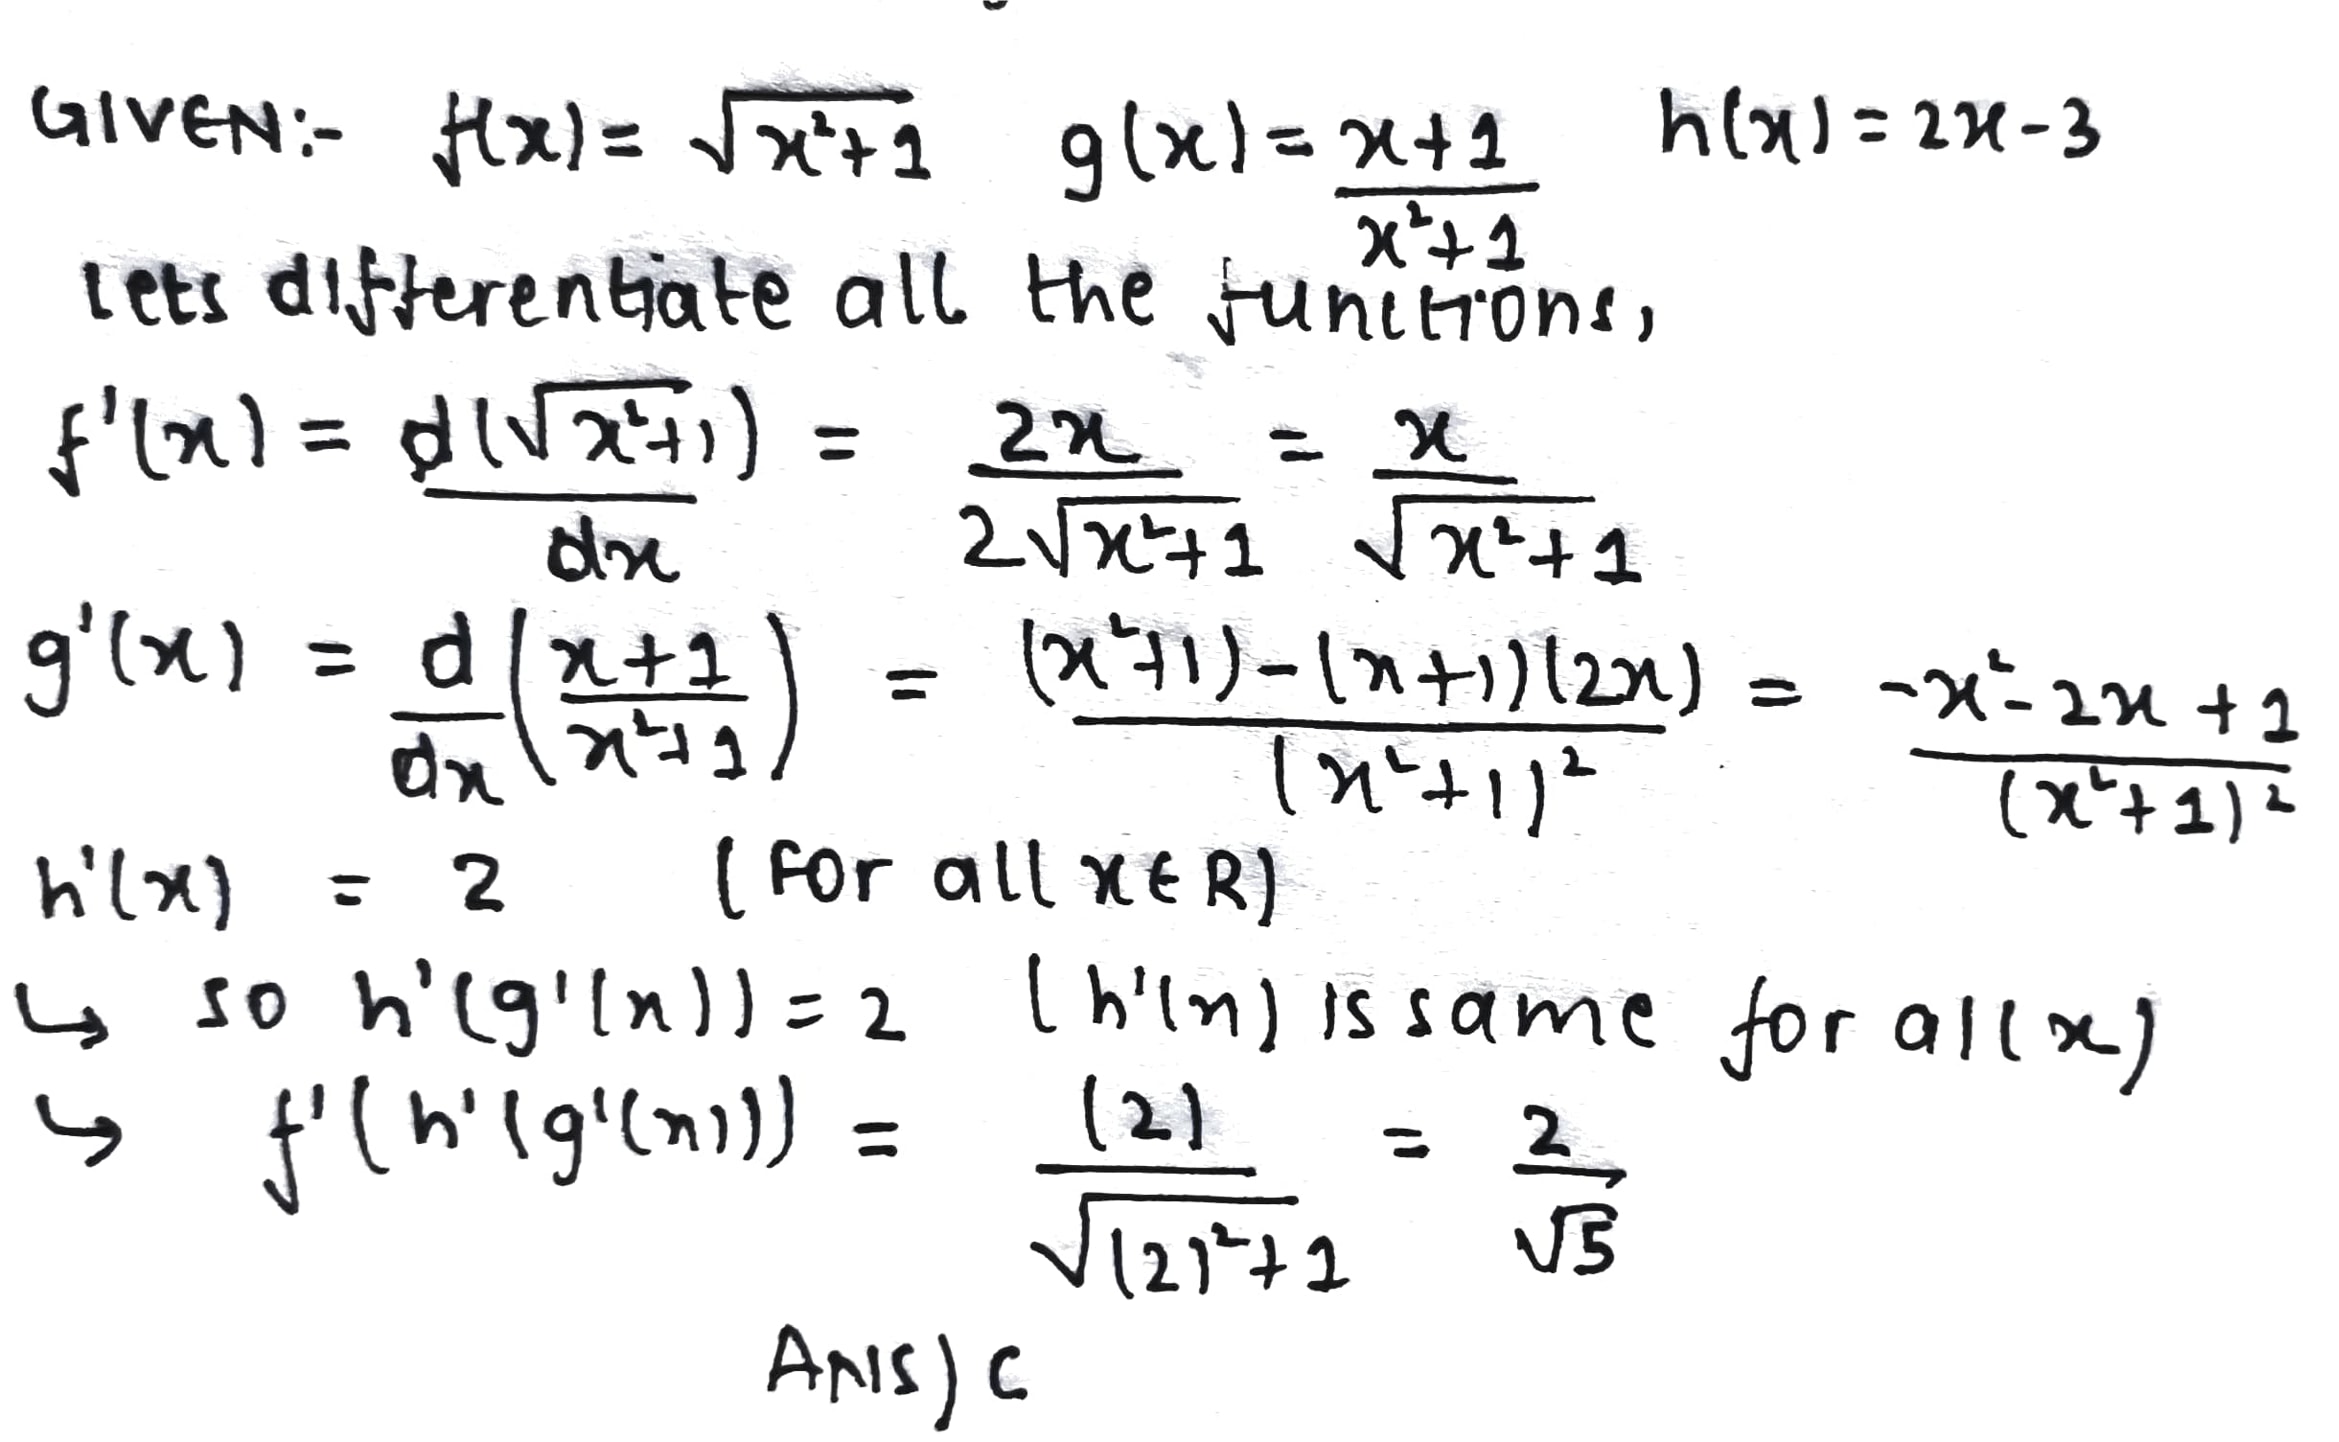 GIVEN:- f(x) = √(x²+1) g(x) = (x+1)/(x²+1) h(x) = 2x-3
lets differentiate all the functions,
f'(x) = d(√(x²+1))/dx = 2x/(2√(x²+1)) = x/√(x²+1)
g'(x) = d/dx ((x+1)/(x²+1)) = ((x²+1)-(x+1)(2x))/(x²+1)² = (-x²-2x+1)/(x²+1)²
h'(x) = 2 (for all x∈R)
↳ so h'(g'(x)) = 2 (h'(x) is same for all x)
↳ f'(h'(g'(x))) = (2)/√((2)²+1) = 2/√5
ANS) C